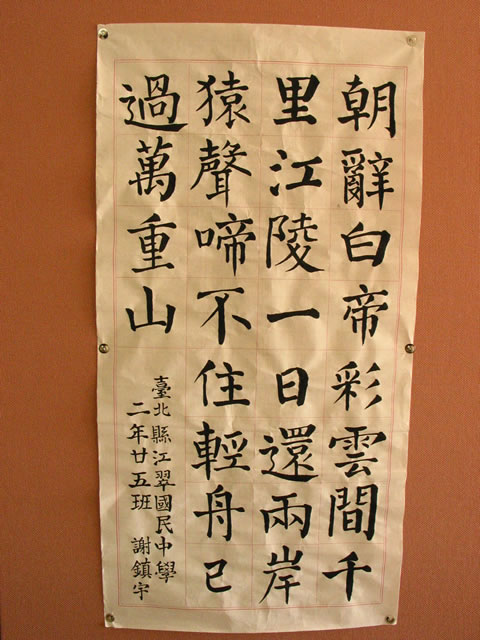 朝辭白帝彩雲間千
里江陵一日還兩岸
猿聲啼不住輕舟已
過萬重山
臺北縣江翠國民中學
二年廿五班 謝鎮宇